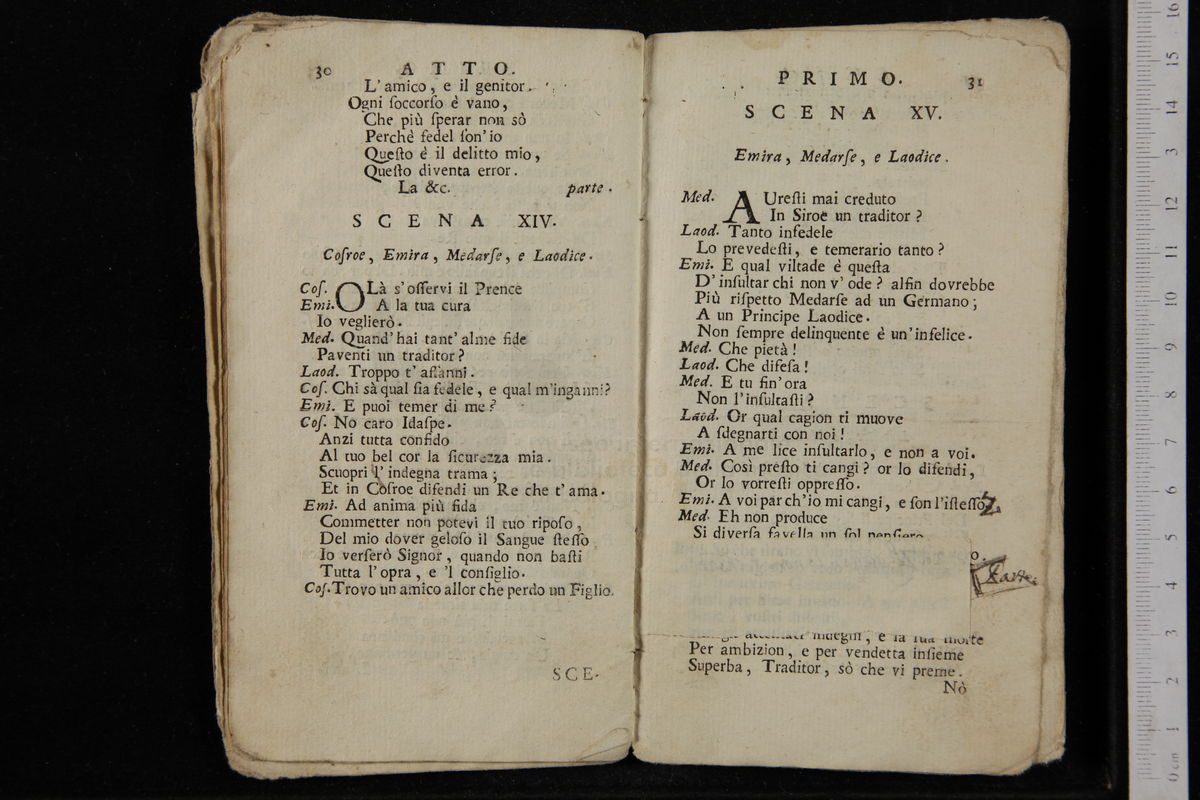 30 ATTO.
L'amico, e il genitor.
Ogni ſoccorſo è vano,
Che più ſperar non sò
Perchè fedel ſon'io
Queſto è il delitto mio,
Queſto diventa error.
La &c. parte.
SCENA XIV.
Coſroe, Emira, Medarſe, e Laodice.
Coſ. OLà s'oſſervi il Prence
Emi. A la tua cura
Io veglierò.
Med. Quand'hai tant'alme fide
Paventi un traditor?
Laod. Troppo t'affanni.
Coſ. Chi sà qual ſia fedele, e qual m'inganni?
Emi. E puoi temer di me?
Coſ. Nò caro Idaſpe.
Anzi tutta confido
Al tuo bel cor la ſicurezza mia.
Scuopri l'indegna trama;
Et in Coſroe difendi un Re che t'ama.
Emi. Ad anima più fida
Commetter non potevi il tuo ripoſo,
Del mio dover geloſo il Sangue ſteſſo
Io verſerò Signor, quando non baſti
Tutta l'opra, e 'l conſiglio.
Coſ. Trovo un amico allor che perdo un Figlio.
SCE-
PRIMO. 31
SCENA XV.
Emira, Medarſe, e Laodice.
Med. AUreſti mai creduto
In Siroe un traditor?
Laod. Tanto infedele
Lo prevedeſti, e temerario tanto?
Emi. E qual viltade è queſta
D'inſultar chi non v'ode? alfin dovrebbe
Più riſpetto Medarſe ad un Germano;
A un Principe Laodice.
Non ſempre delinquente è un'infelice.
Med. Che pietà!
Laod. Che difeſa!
Med. E tu ſin'ora
Non l'inſultaſti?
Laod. Or qual cagion ti muove
A ſdegnarti con noi!
Emi. A me lice inſultarlo, e non a voi.
Med. Così preſto ti cangi? or lo difendi,
Or lo vorreſti oppreſſo.
Emi. A voi par ch'io mi cangi, e ſon l'iſteſſo.
Med. Eh non produce
Si diverſa favella un ſol penſiero
o.
indegni, e la ſua morte
Per ambizion, e per vendetta inſieme
Superba, Traditor, sò che vi preme.
Nò
16
15
14
13
12
11
10
9
8
7
6
5
4
3
2
1
0 cm